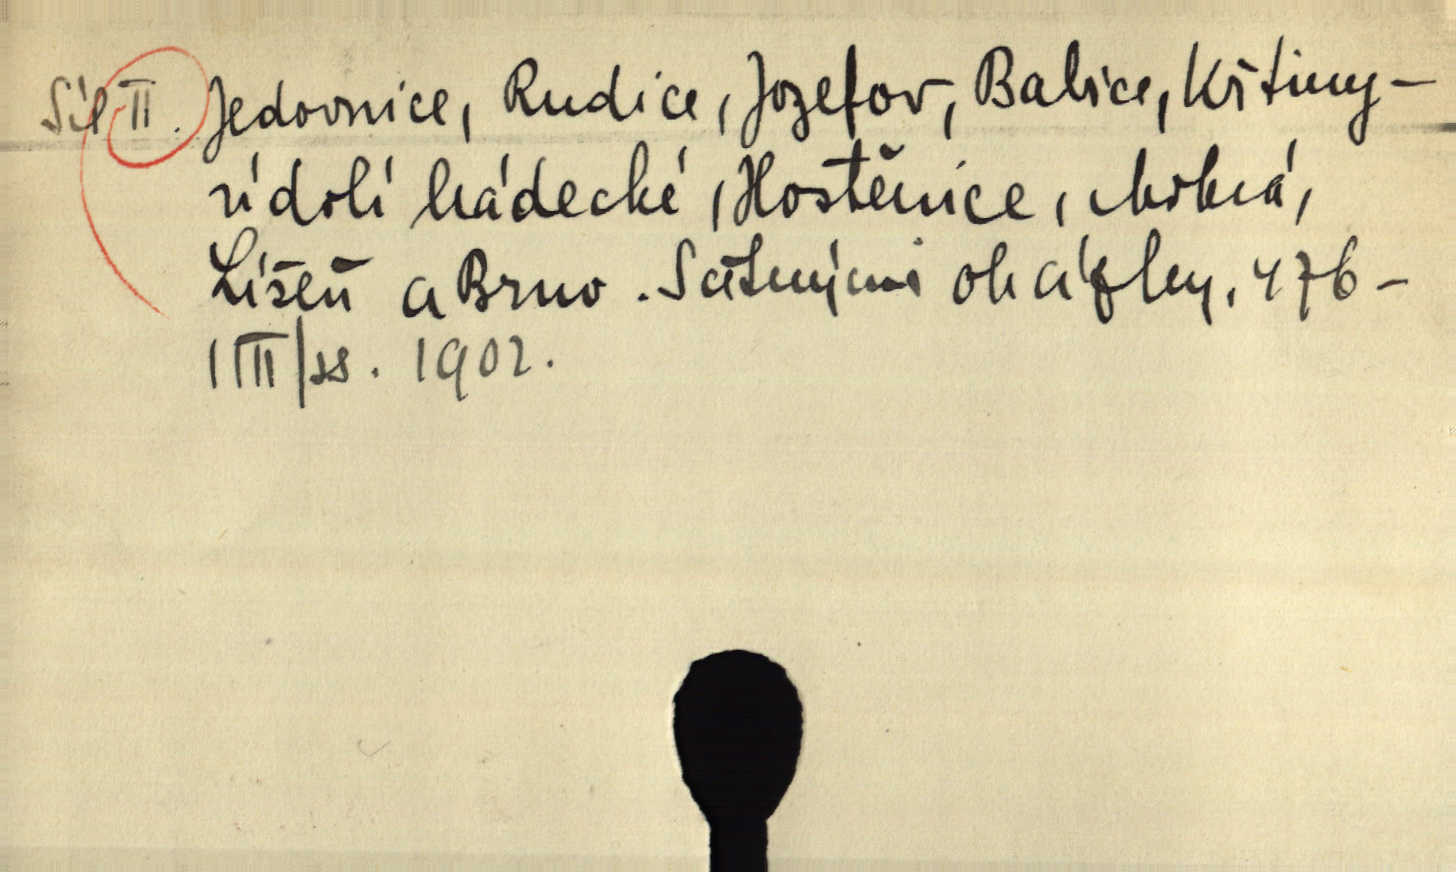 Díl II. Jedovnice, Rudice, Jozefov, Babice, Křtiny –
údolí hádecké, Hostěnice, Mokrá,
Líšeň a Brno. S četnými obrázky. 476 –
III/ss. 1902.